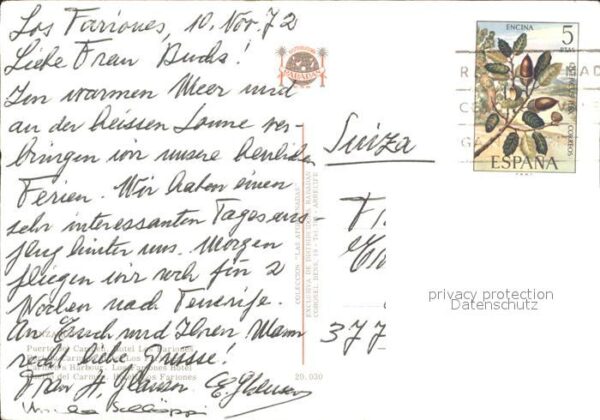 Los Fariones, 10. Nov. 72
Liebe Frau Buchs!
Im warmen Meer und
an der heissen Sonne ver-
bringen wir unsere herrlichen
Ferien. Wir haben einen
sehr interessanten Tagesaus-
flug hinter uns. Morgen
fliegen wir noch für 2
Wochen nach Tenerife.
An Euch und Ihren Mann
recht liebe Grüsse!
Frau H.
Suiza
377
ENCINA
5
PTAS
CORREOS
ESPAÑA
COLECCION "LAS AFORTUNADAS"
EXCLUSIVA DE DISTRIBUCION: RAHADAN
20.030
Puerto del Carmen, Hotel Los Fariones
Harbour, Los Fariones Hotel
Hotel Los Fariones
privacy protection
Datenschutz